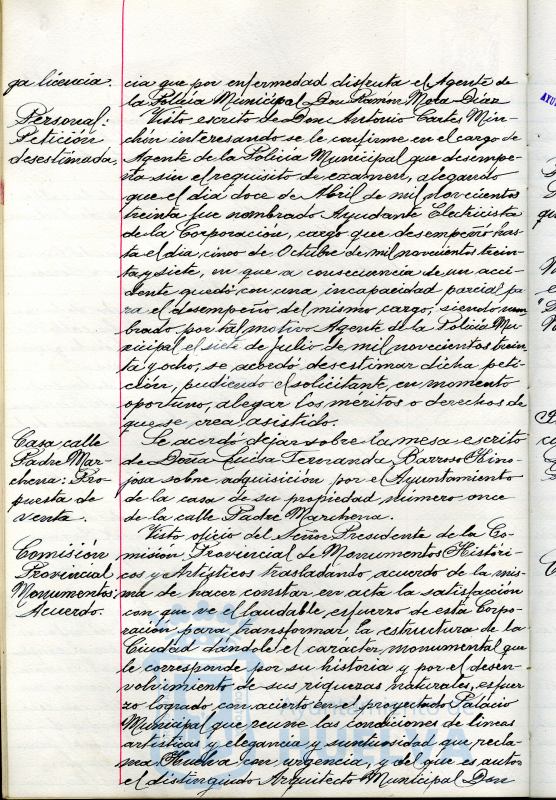 ga licencia.
cia que por enfermedad disfruta el Agente de
la Policia Municipal Don Ramón Mora Díaz
Personal:
Petición
desestimada.
Visto escrito de Don Antonio Cartes Min-
chón interesando se le confirme en el cargo de
Agente de la Policia Municipal que desempe-
ña sin el requisito de examen, alegando
que el dia doce de Abril de mil novecientos
treinta fue nombrado Ayudante Electricista
de la Corporación, cargo que desempeñó has-
ta el dia cinco de Octubre de mil novecientos trein-
ta y siete, en que a consecuencia de un acci-
dente quedó con una incapacidad parcial pa-
ra el desempeño del mismo cargo, siendo nom-
brado por tal motivo Agente de la Policia Mu-
nicipal el siete de Julio de mil novecientos trein-
ta y ocho, se acordó desestimar dicha peti-
ción, pudiendo el solicitante, en momento
oportuno, alegar los méritos o derechos de
que se crea asistido.
Casa calle
Padre Mar-
chena: Pro-
puesta de
venta.
Se acordó dejar sobre la mesa escrito
de Doña Luisa Fernanda Barroso Hino-
josa sobre adquisición por el Ayuntamiento
de la casa de su propiedad número once
de la calle Padre Marchena.
Comisión
Provincial
Monumentos:
Acuerdo.
Visto oficio del Señor Presidente de la Co-
misión Provincial de Monumentos Históri-
cos y Artísticos trasladando acuerdo de la mis-
ma de hacer constar en acta la satisfacción
con que ve el laudable esfuerzo de esta Corpo-
ración para transformar la estructura de la
Ciudad dándole el carácter monumental que
le corresponde por su historia y por el desen-
volvimiento de sus riquezas naturales, esfuer-
zo logrado con acierto en el proyectado Palacio
Municipal que reune las condiciones de lineas
artisticas y elegancia y suntuosidad que recla-
ma Huelva con urgencia, y del que es autor
el distinguido Arquitecto Municipal Don
HUELVA